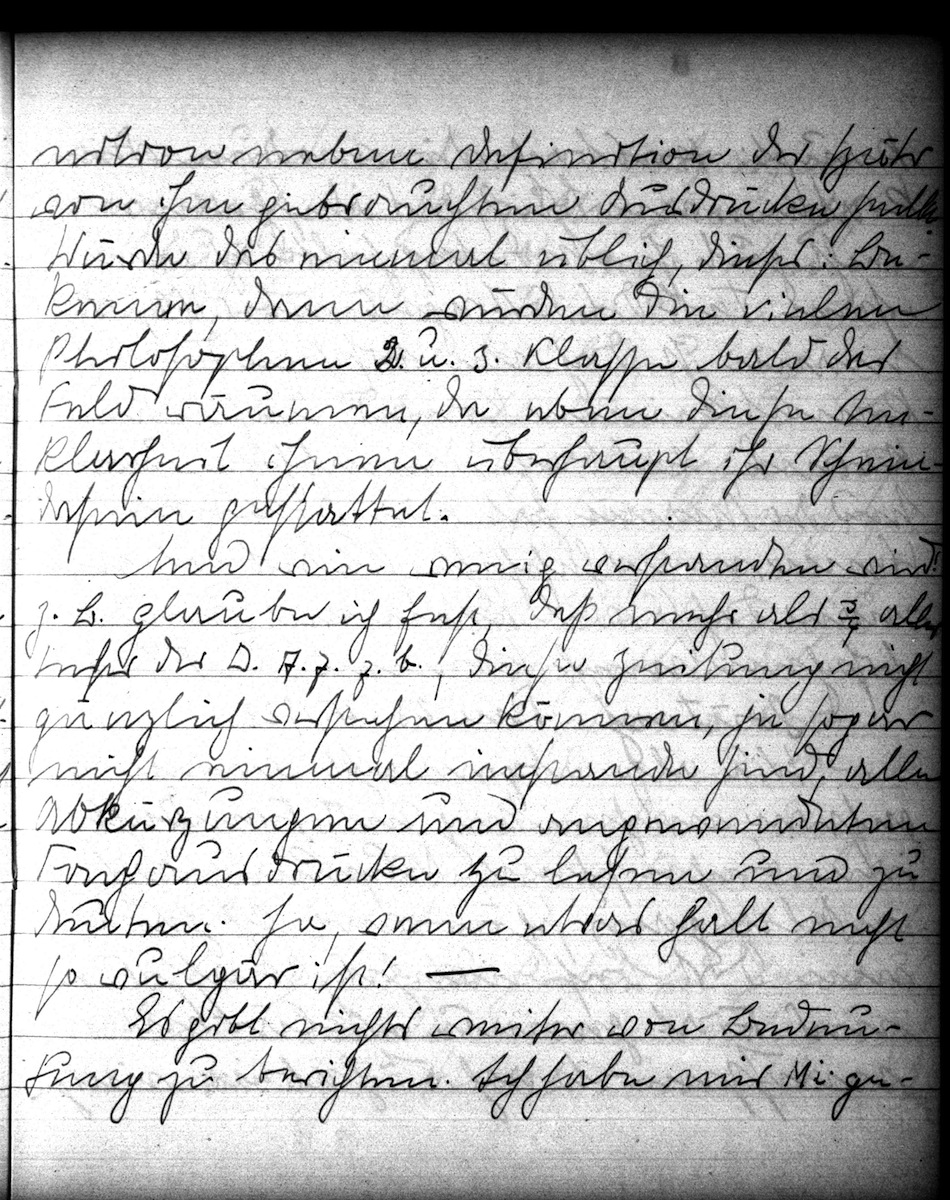 nition neben Definition der später
von ihm gebrauchten Ausdrücke stellte.
Würde das einmal üblich, dieses: Be-
kenne, dann würden die vielen
Philosophen 2. u. 3. Klasse bald das
Feld räumen, da eben diese Un-
klarheit ihnen überhaupt ihr Schein-
dasein gestattet.
Und wie wenig verstanden wird!
z. B. glaube ich fest, daß mehr als ¾ aller
Leser der D. A. Z. z. b., diese Zeitung nicht
gänzlich verstehen können, ja sogar
nicht einmal imstande sind, alle
Abkürzungen und angewendeten
Fachausdrücke zu lesen und zu
deuten. Ja, wenn etwas halt nicht
so vulgär ist! —
Es gibt nichts weiter von Bedeu-
tung zu berichten. Ich habe mir Mi. ge-